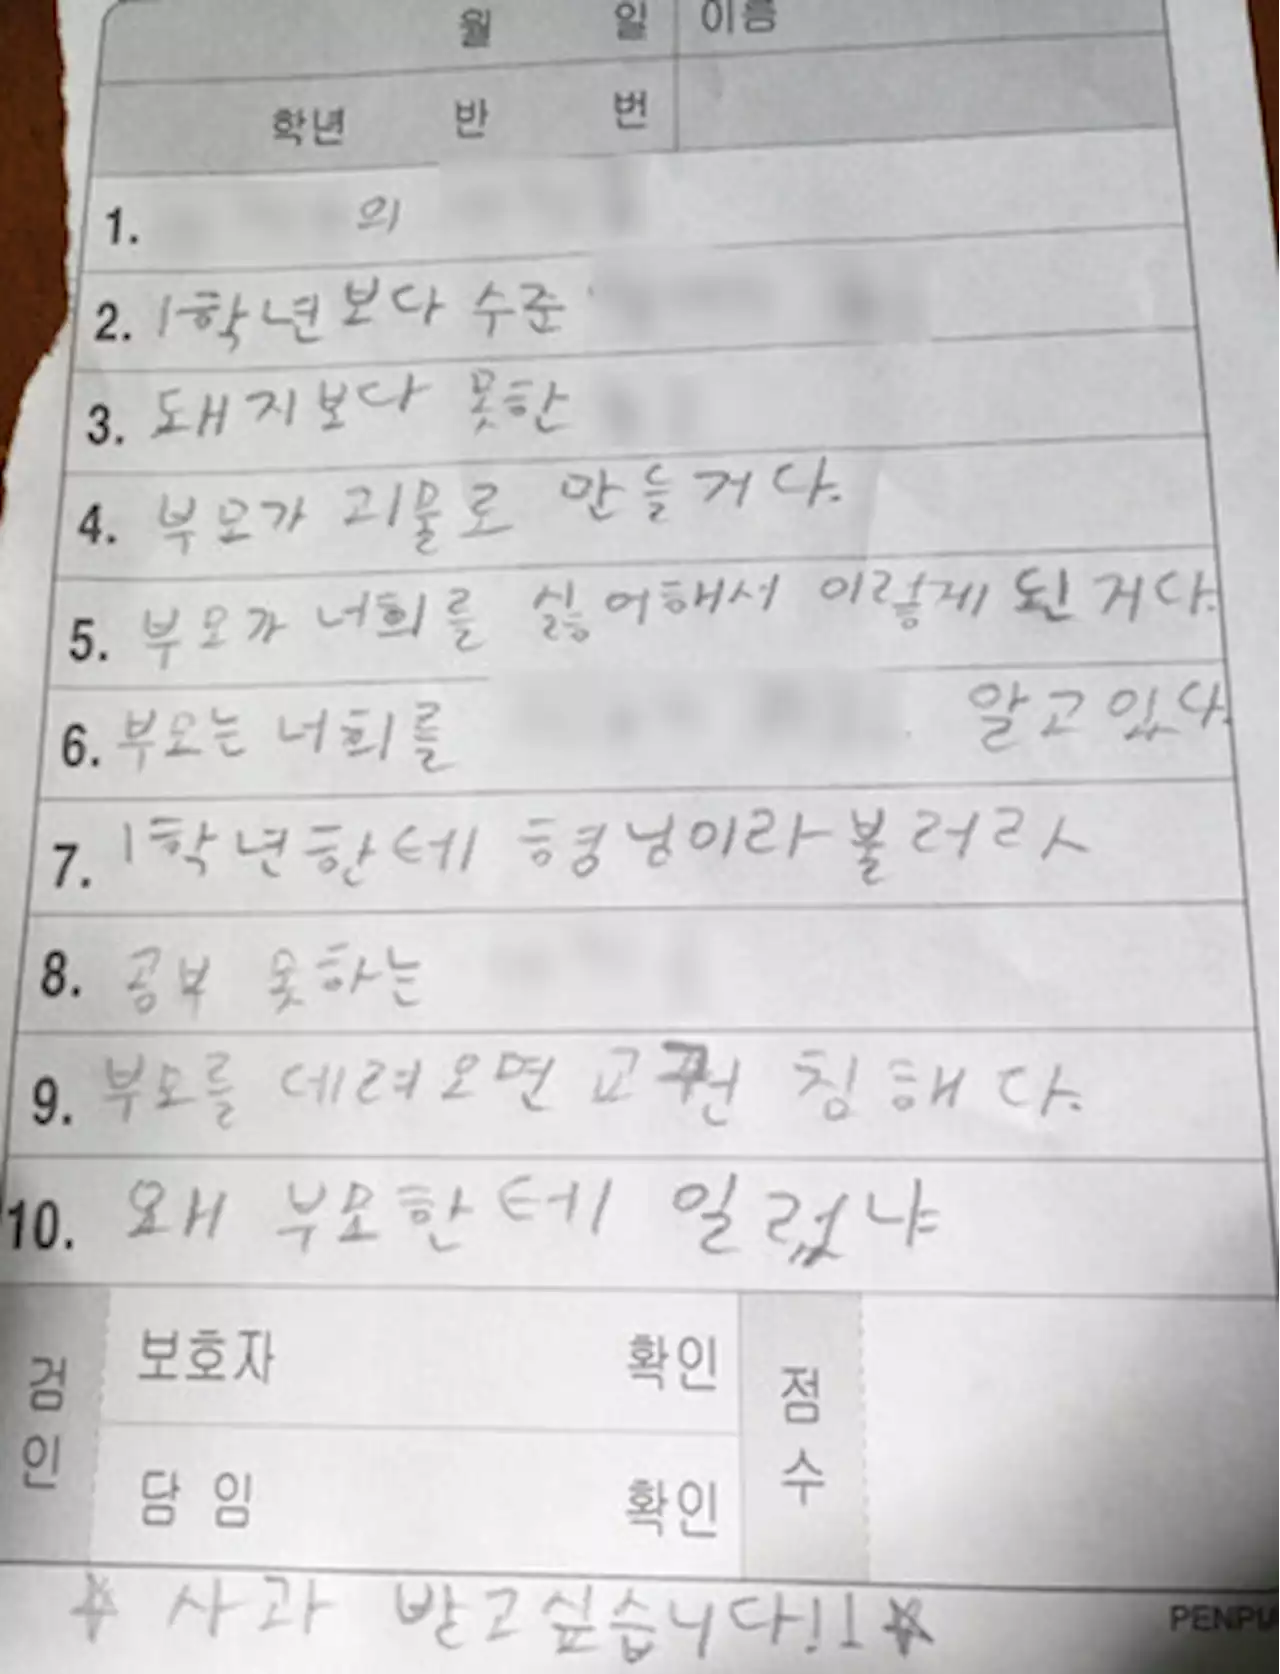 월 일 이름
학년 반 번
1. 의
2. 1학년보다 수준
3. 돼지보다 못한
4. 부모가 괴물로 만들거다.
5. 부모가 너희를 싫어해서 이렇게 된거다.
6. 부모는 너희를 알고있다
7. 1학년한테 형님이라 불러라
8. 공부 못하는
9. 부모를 데려오면 교권 침해다.
10. 왜 부모한테 일렀냐
검인 보호자 확인 점수
담임 확인
☆ 사과 받고싶습니다!! ☆